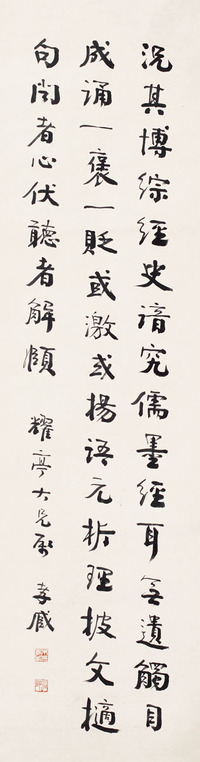 況其博綜經史諳究儒墨經耳無遺觸目
成誦一褒一貶或激或揚語元析理披文摘
句閱者心伏聽者解頤 耀亭大兄屬 孝臧